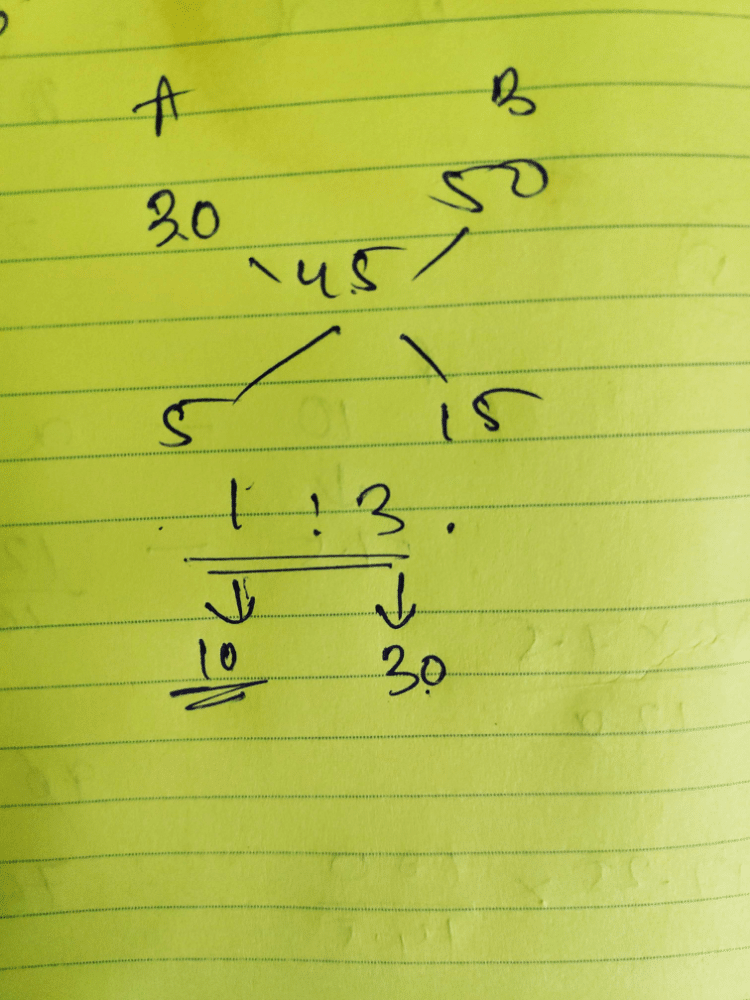 A B
30 50
45
5 15
1 : 3 .
10 30